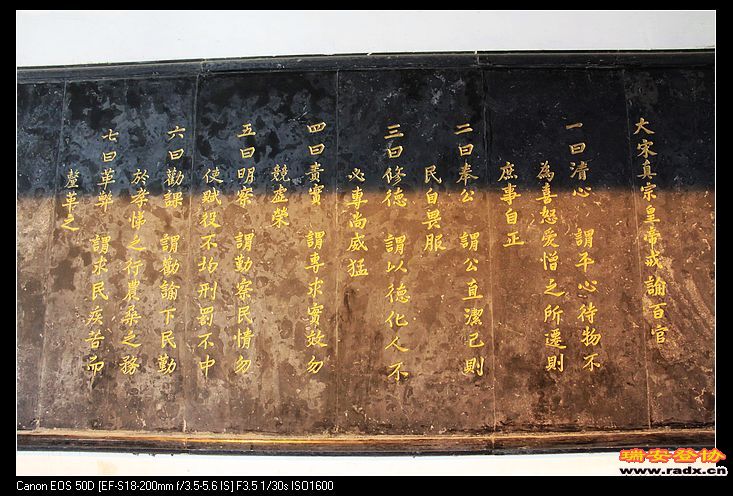 大宋真宗皇帝戒諭百官
一曰清心　謂平心待物不
為喜怒愛憎之所遷則
庶事自正
二曰奉公　謂公直潔己則
民自畏服
三曰修德　謂以德化人不
必專尚威猛
四曰責實　謂專求實效勿
競虛榮
五曰明察　謂勤察民情勿
使賦役不均刑罰不中
六曰勸課　謂勸諭下民勤
於孝悌之行農桑之務
七曰革弊　謂求民疾苦而
釐革之
Canon EOS 50D [EF-S18-200mm f/3.5-5.6 IS] F3.5 1/30s ISO1600
瑞安登协
www.radx.cn